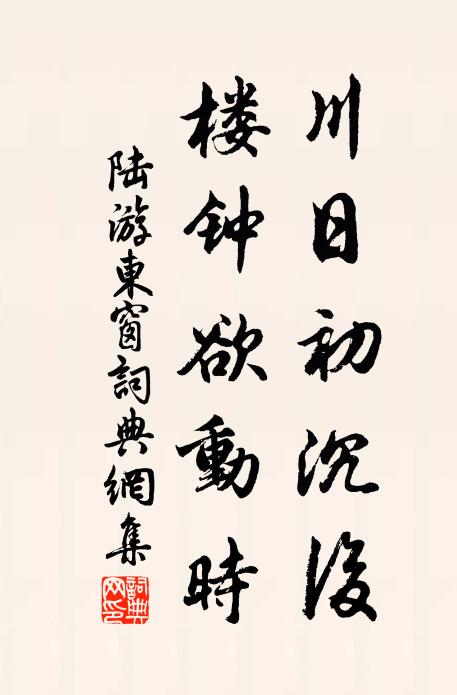 川日初沉後
楼钟欲動時
陆游東窗詞典網集
詞典网印